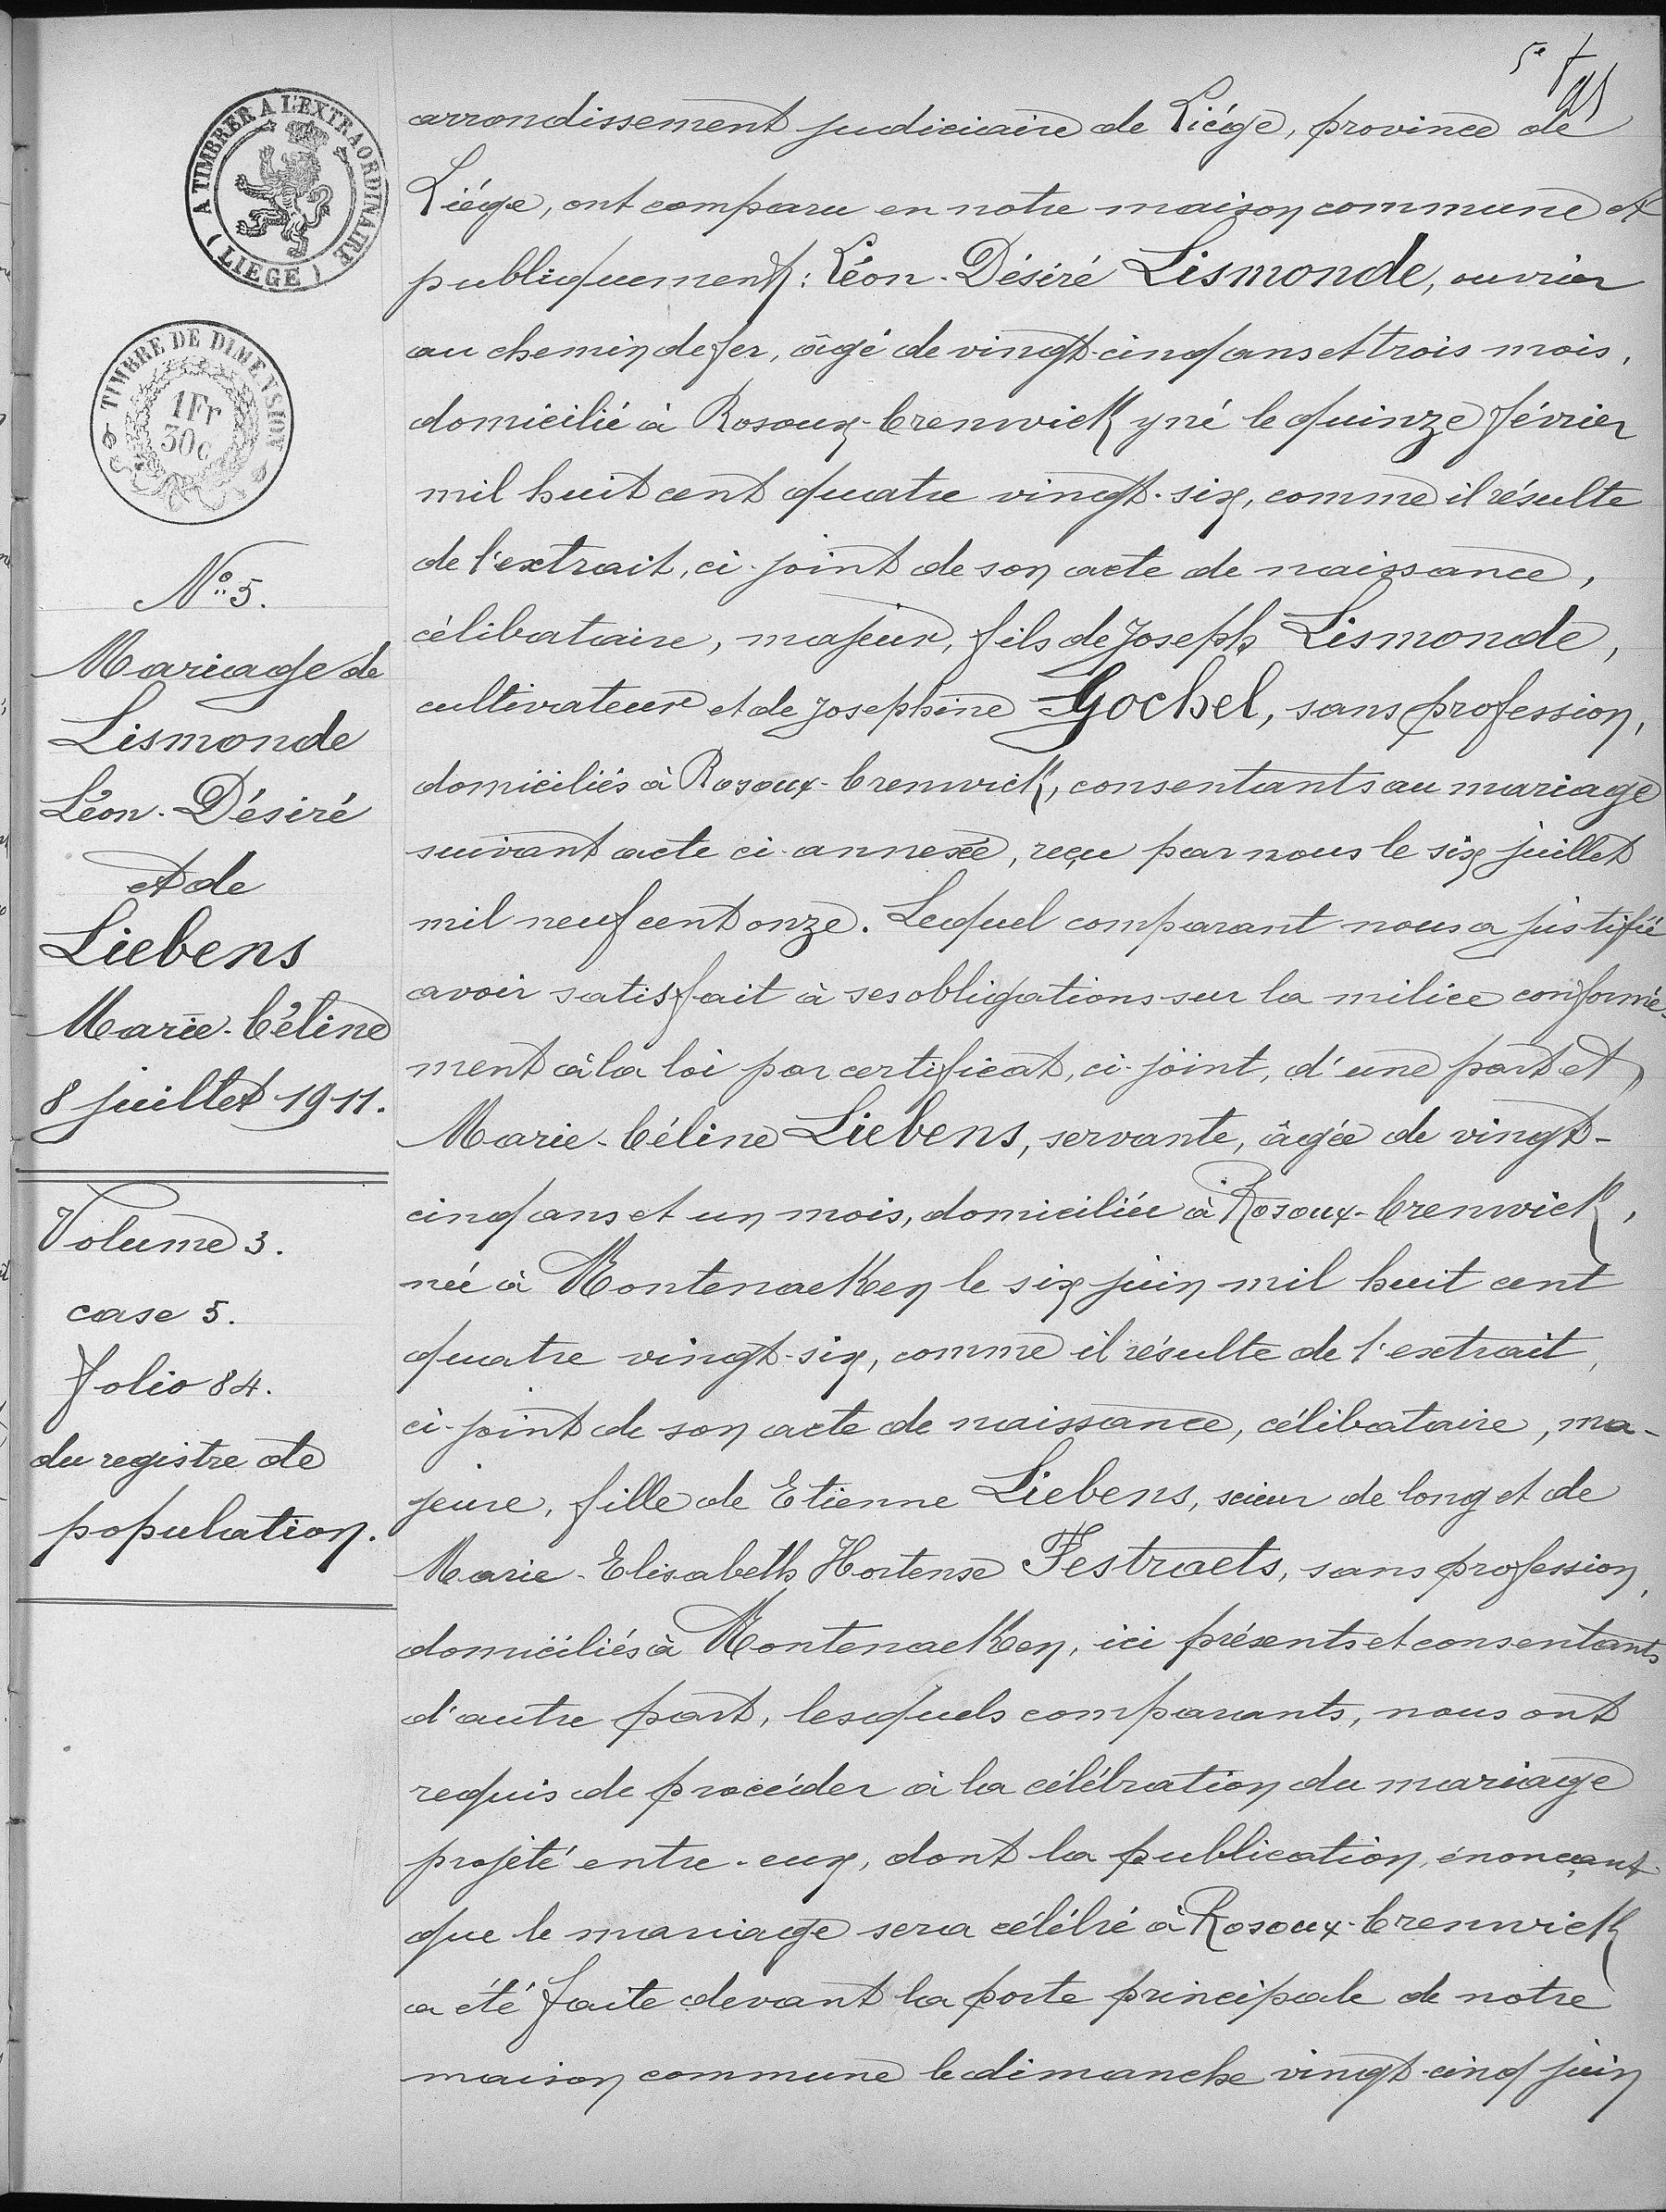 5e
A TIMBRER A L'EXTRAORDINAIRE
(LIEGE)
TIMBRE DE DIMENSION
1Fr
30c
No 5.
Mariage de
Lismonde
Léon-Désiré
et de
Liebens
Marie-Céline
8 juillet 1911.
Volume 3.
case 5.
folio 84.
du registre de
population.
arrondissement judiciaire de Liége, province de
Liége, ont comparu en notre maison commune et
publiquement: Léon-Désiré Lismonde, ouvrier
au chemin de fer, âgé de vingt-cinq ans et trois mois,
domicilié à Rosoux-Crenwick y né le quinze février
mil huit cent quatre vingt-six, comme il résulte
de l'extrait, ci-joint de son acte de naissance,
célibataire, majeur, fils de Joseph Lismonde,
cultivateur et de Josephine Gochel, sans profession,
domiciliés à Rosoux-Crenwick, consentants au mariage
suivant acte ci-annexée, reçu par nous le six juillet
mil neuf cent onze. Lequel comparant nous a justifié
avoir satisfait à ses obligations sur la milice conformé-
ment à la loi par certificat, ci-joint, d'une part et
Marie-Céline Liebens, servante, âgée de vingt-
cinq ans et un mois, domiciliée à Rosoux-Crenwick,
née à Montenaeken le six juin mil huit cent
quatre vingt-six, comme il résulte de l'extrait,
ci-joint de son acte de naissance, célibataire, ma-
jeure, fille de Etienne Liebens, scieur de long et de
Marie-Elisabeth Hortense Festraets, sans profession,
domiciliés à Montenaeken, ici présents et consentants
d'autre part, lesquels comparants, nous ont
requis de procéder à la célébration du mariage
projeté entre-eux, dont la publication, énonçant
que le mariage sera célébré à Rosoux-Crenwick
a été faite devant la porte principale de notre
maison commune le dimanche vingt-cinq juin